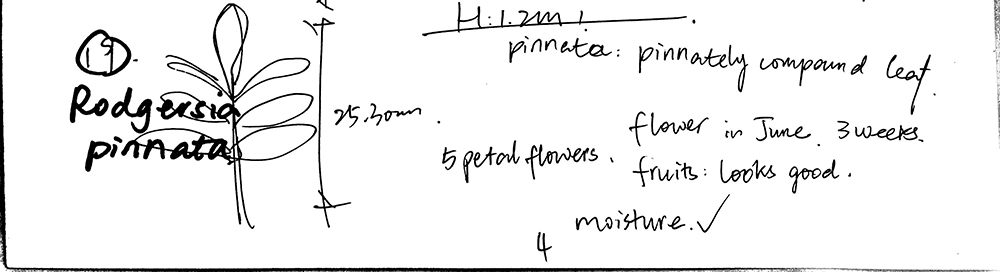 H: 1.2m!
pinnata: pinnately compound leaf.
19.
Rodgersia
pinnata
25.30cm.
flower in June. 3 weeks.
5 petal flowers.
fruits: looks good.
moisture. ✓
4